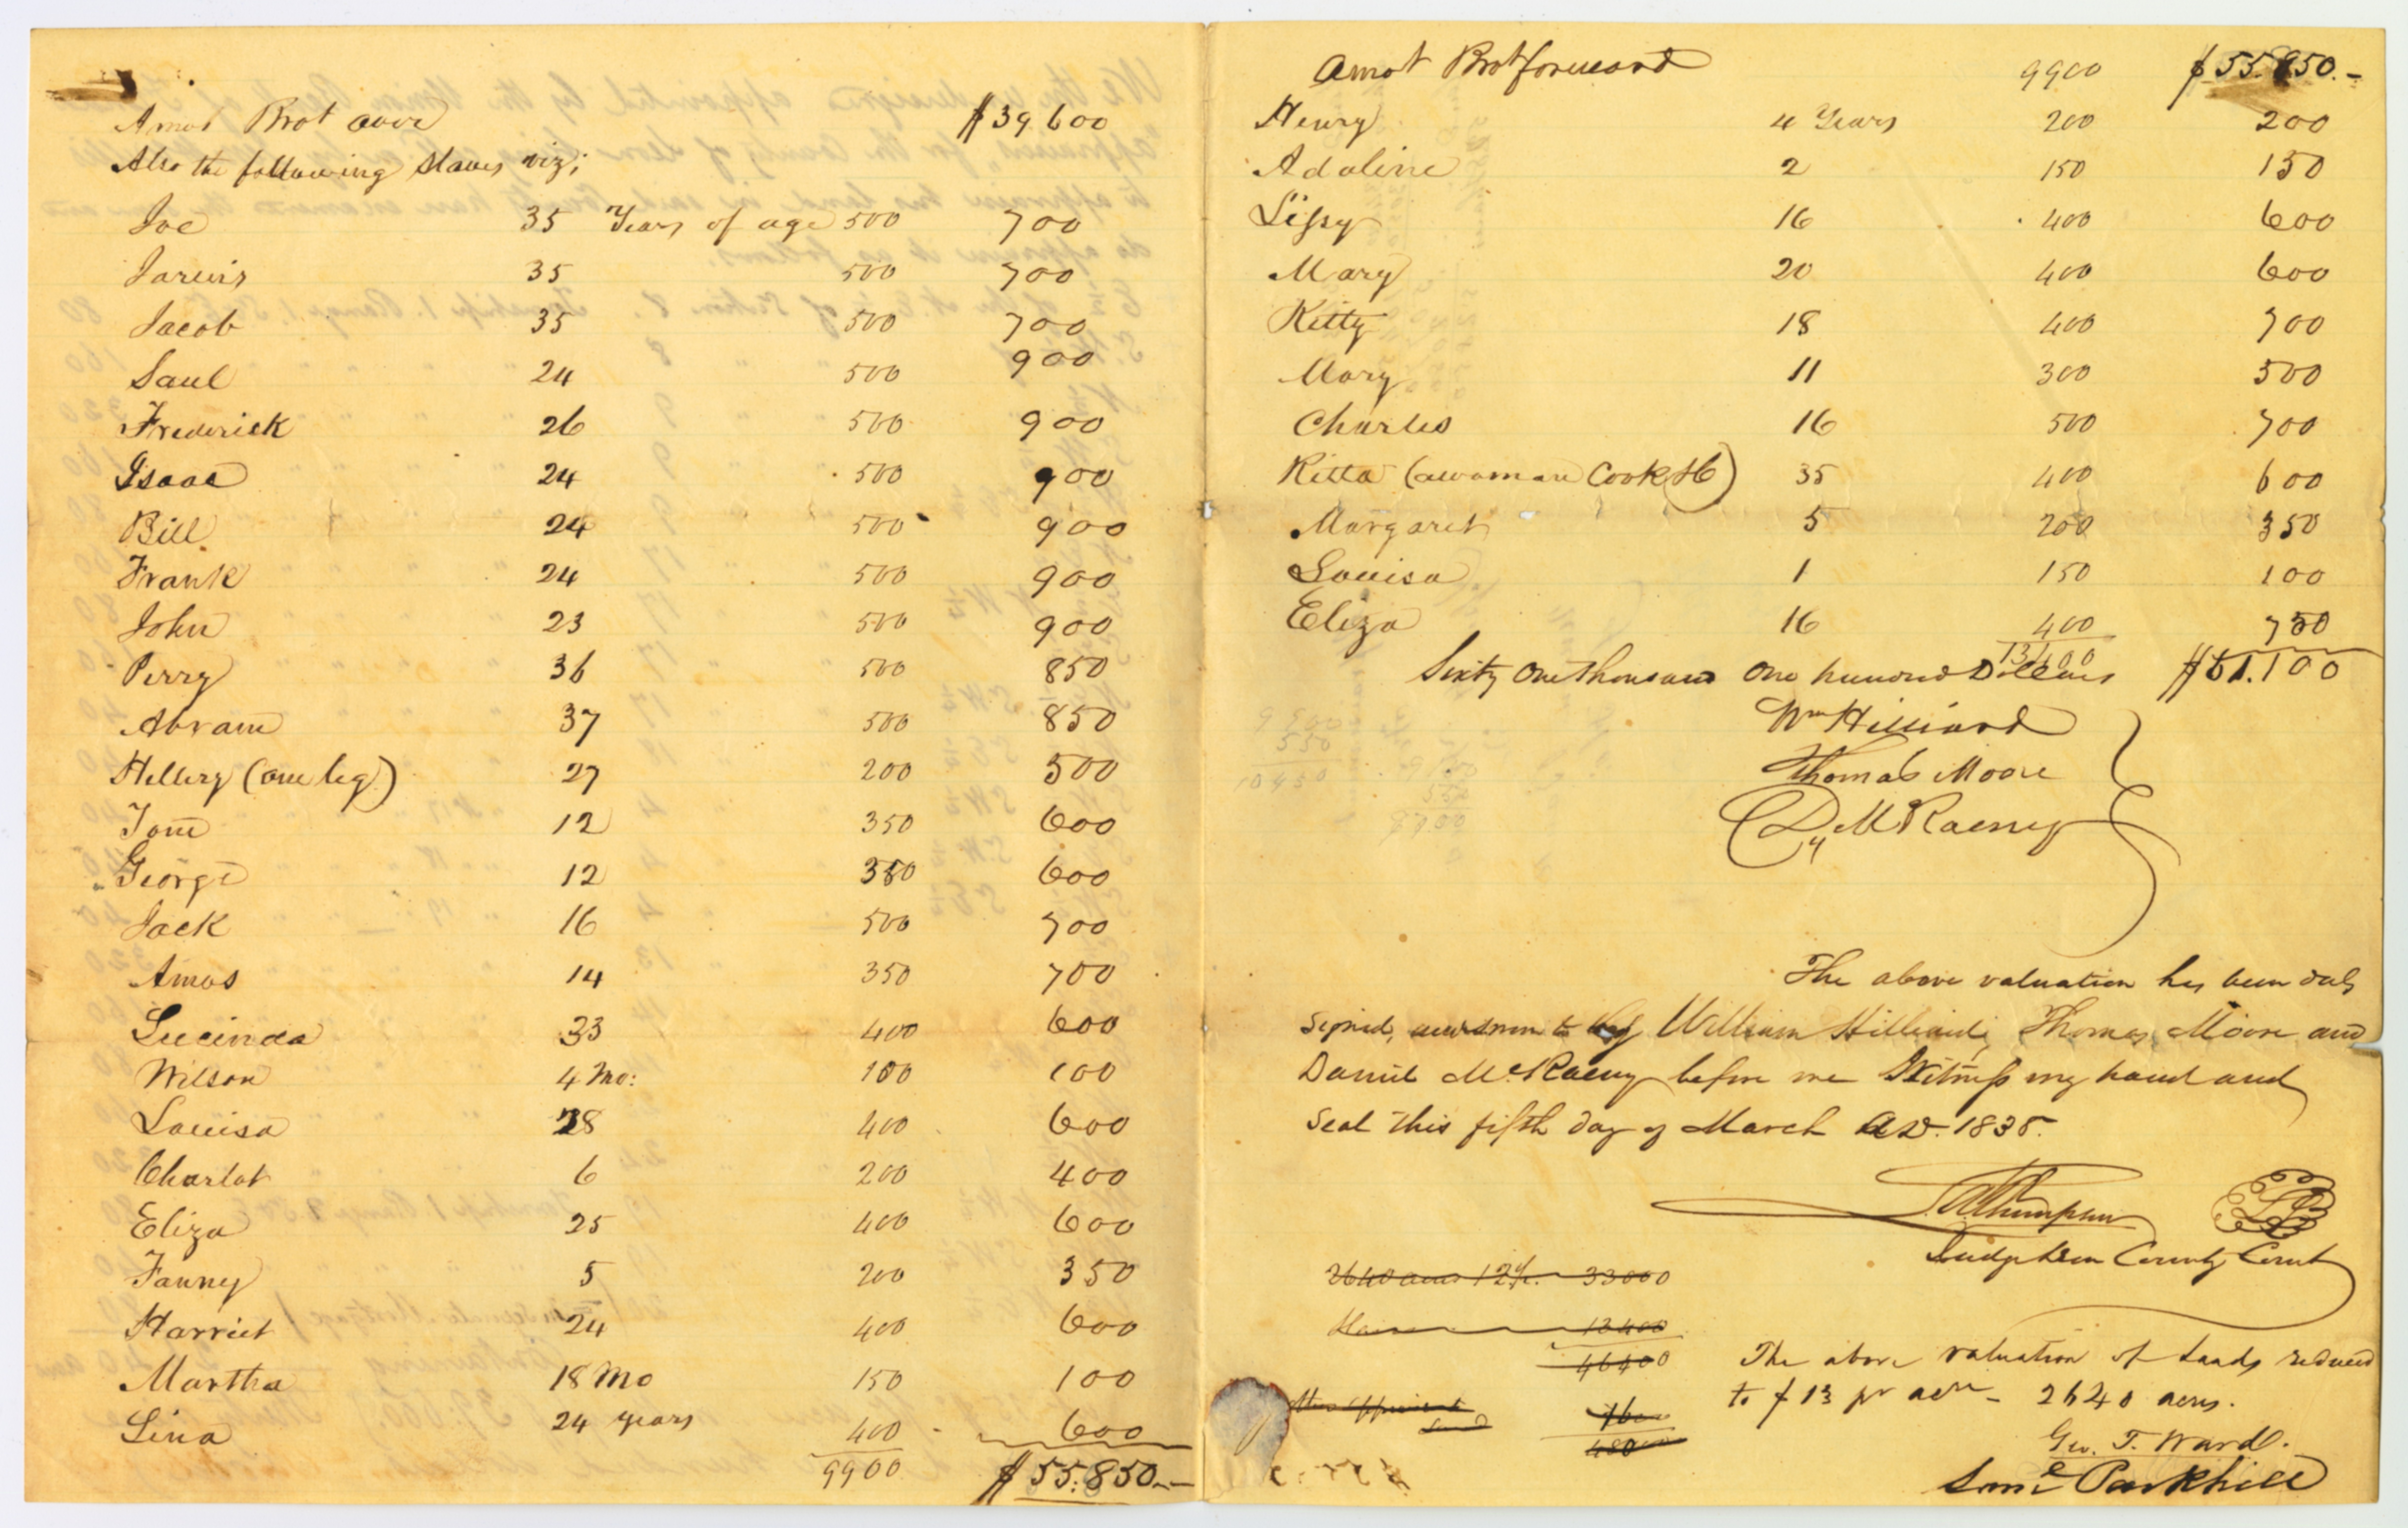 Amot Brot over $39600
Also the following slaves viz;
Joe 35 Years of age 500 700
Jarvis 35 500 700
Jacob 35 500 700
Saul 24 500 900
Frederick 26 500 900
Isaac 24 500 900
Bill 24 500 900
Frank 24 500 900
John 23 500 900
Perry 36 500 850
Abram 37 500 850
Hellery (one leg) 27 200 500
Tom 12 350 600
George 12 350 600
Jack 16 500 700
Amos 14 350 700
Lucinda 33 400 600
Wilson 4 Mo: 100 100
Louisa 28 400 600
Charlot 6 200 400
Eliza 25 400 600
Fanny 5 200 350
Harriet 24 400 600
Martha 18 Mo 150 100
Lina 24 years 400 600
9900 $55.850.-
Amot Brot forward 9900 $55.850.-
Henry 4 Years 200 200
Adaline 2 150 150
Lissy 16 400 600
Mary 20 400 600
Kitty 18 400 700
Mary 11 300 500
Charles 16 500 700
Kitta (a woman Cook &c) 35 400 600
Margaret 5 200 350
Louisa 1 150 100
Eliza 16 400 750
13400
Sixty One thousand One hundred Dollars $61.100
Wm Hilliard
Thomas Moore
D McRaeny
9900
550
10450
The above valuation has been duly
signed, and sworn to by William Hilliard, Thomas Moore and
Daniel McRaeny before me Witness my hand and
Seal this fifth day of March AD. 1838.
Thompson LS
Judge Leon County Court
2640 acres 12½ 33000
13400
46400
The above valuation of Lands reduced
to $13 pr acre - 2640 acres.
Geo. T. Ward.
Saml Parkhill